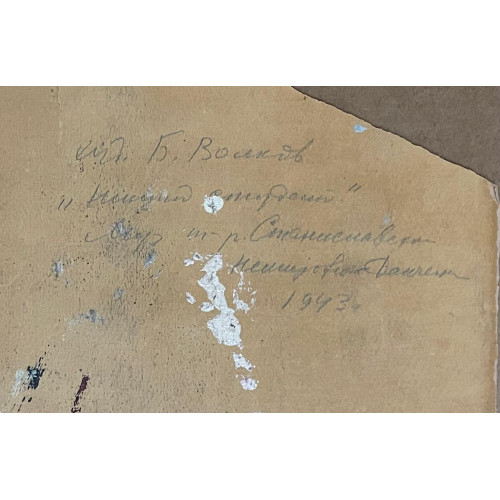 худ. Б. Волков
„Нищий студент"
Муз т-р. Станиславского
Немировича-Данченко
1943г